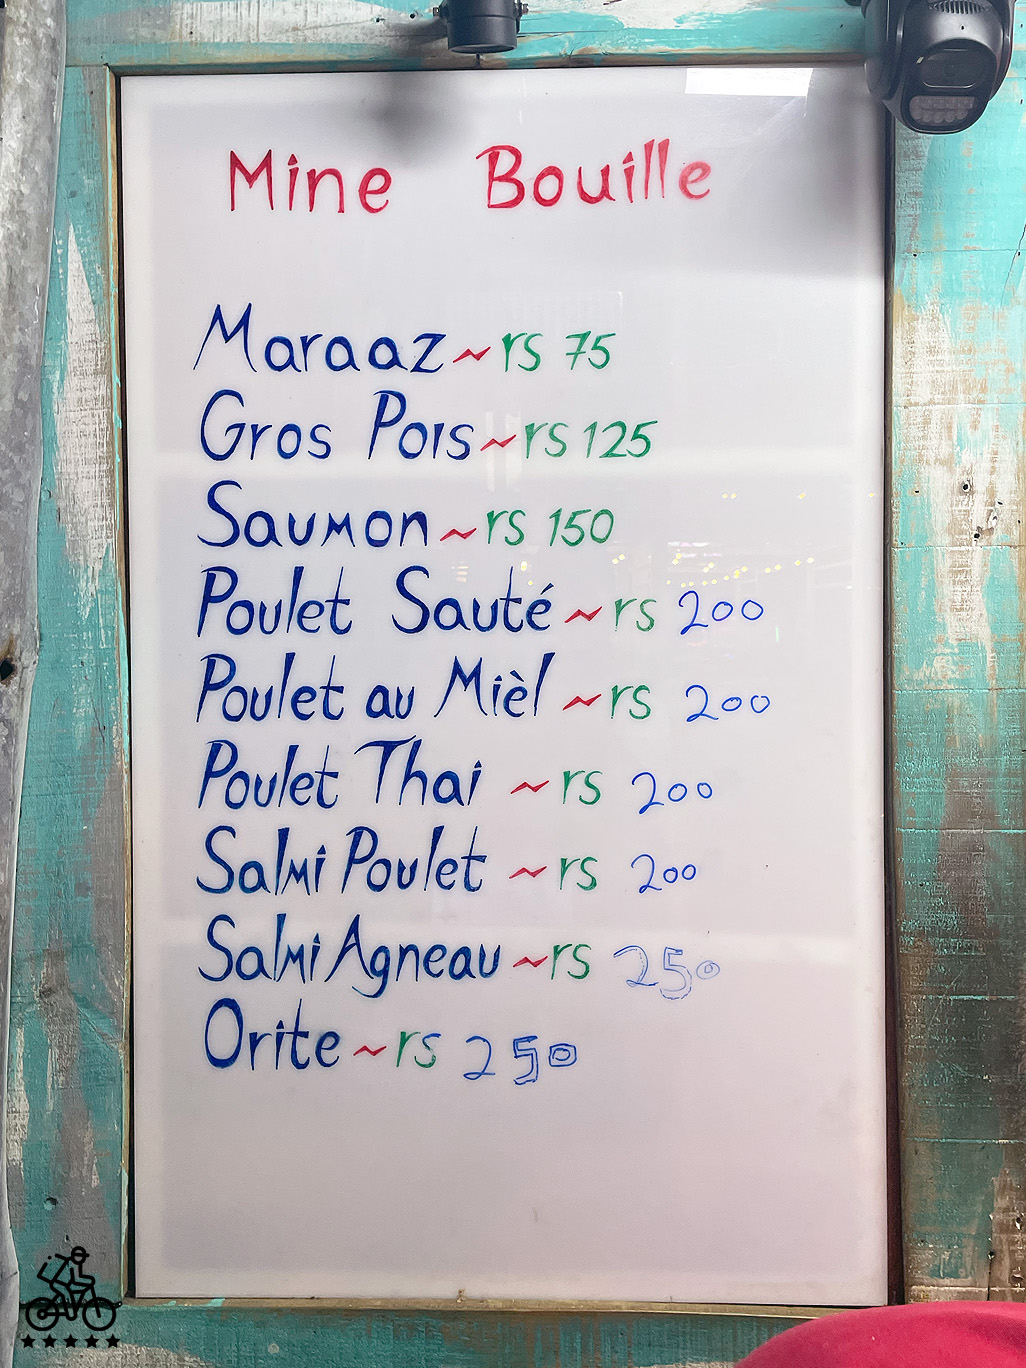 Mine Bouille
Maraaz ~ rs 75
Gros Pois ~ rs 125
Saumon ~ rs 150
Poulet Sauté ~ rs 200
Poulet au Mièl ~ rs 200
Poulet Thai ~ rs 200
Salmi Poulet ~ rs 200
Salmi Agneau ~ rs 250
Orite ~ rs 250